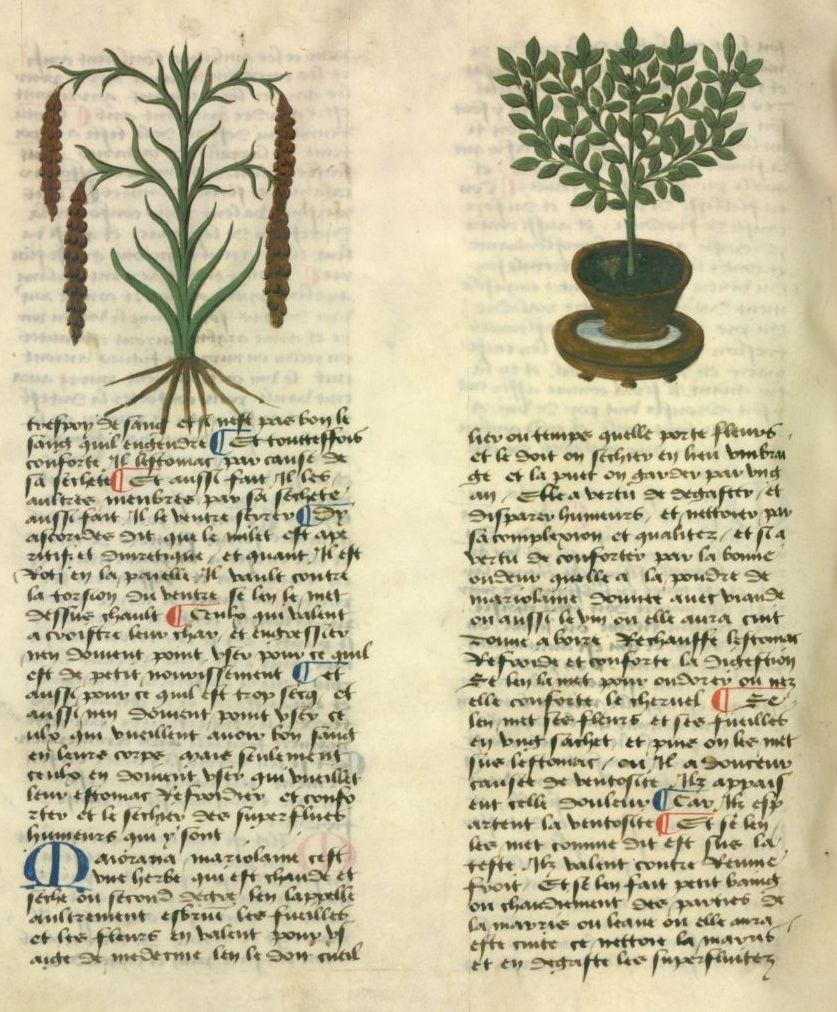 trespoy de sang et si nest pas bon le
sang quil engendre ¶ Et touttesfois
conforte Il lestomac par cause de
sa sechete ¶ Et aussi fait Il les
aultres menbres par sa sechete
aussi fait Il le ventre serrer ¶ Dy
ascorides dit que le milet est ape
ritif et diuretique et quant Il est
Roti en la paielle Il vault contre
la torsion du ventre se len le met
dessus chault ¶ Ceulx qui valent
a croistre leur char et engressier
nen doiuent point vser pour ce quil
est de petit nourissement ¶ et
aussi pour ce quil est trop secq et
aussi nen doiuent point vser ce
ulx qui vueillent auoir bon sang
en leurs corps mais seulement
ceulx en doiuent vser qui vueillet
leur estomac Refroidier et confo
rter et le sechier des superflues
humeurs qui y sont
Maiorana mariolaine cest
vne herbe qui est chaude et
seche ou second degre len lappelle
aultrement esbrie les fueilles
et les fleurs en valent pour vs
aige de medecine len le doit cueil
lier ou temps quelle porte fleurs
et le doit on sechier en lieu vmbra
ge et la puet on garder par vng
an Elle a vertu de degaster et
disparer humeurs et nettoier par
sa complexion et qualitez et si a
vertu de conforter par la bonne
oudeur quelle a la poudre de
mariolaine donnee auec viande
ou aussi le vin ou elle aura cuit
donne a boire Rechauffe lestomac
Refroide et conforte la digestion
Se len la met pour oudorer ou nez
elle conforte le cheruel ¶ Se
len met ses fleurs et ses fueilles
en vng sachet et puis on les met
sus lestomac ou Il a douceur
causee de ventosite Ilz appais
ent celle douleur ¶ Car Ilz esp
artent la ventosite ¶ Et se len
les met comme dit est sus la
teste Ilz valent contre Reume
froit Et se len fait petit baing
ou chaudement des parties de
la mayris ou leaue ou elle aura
este cuite ce nettoie la mayris
et en degaste les superfluitez